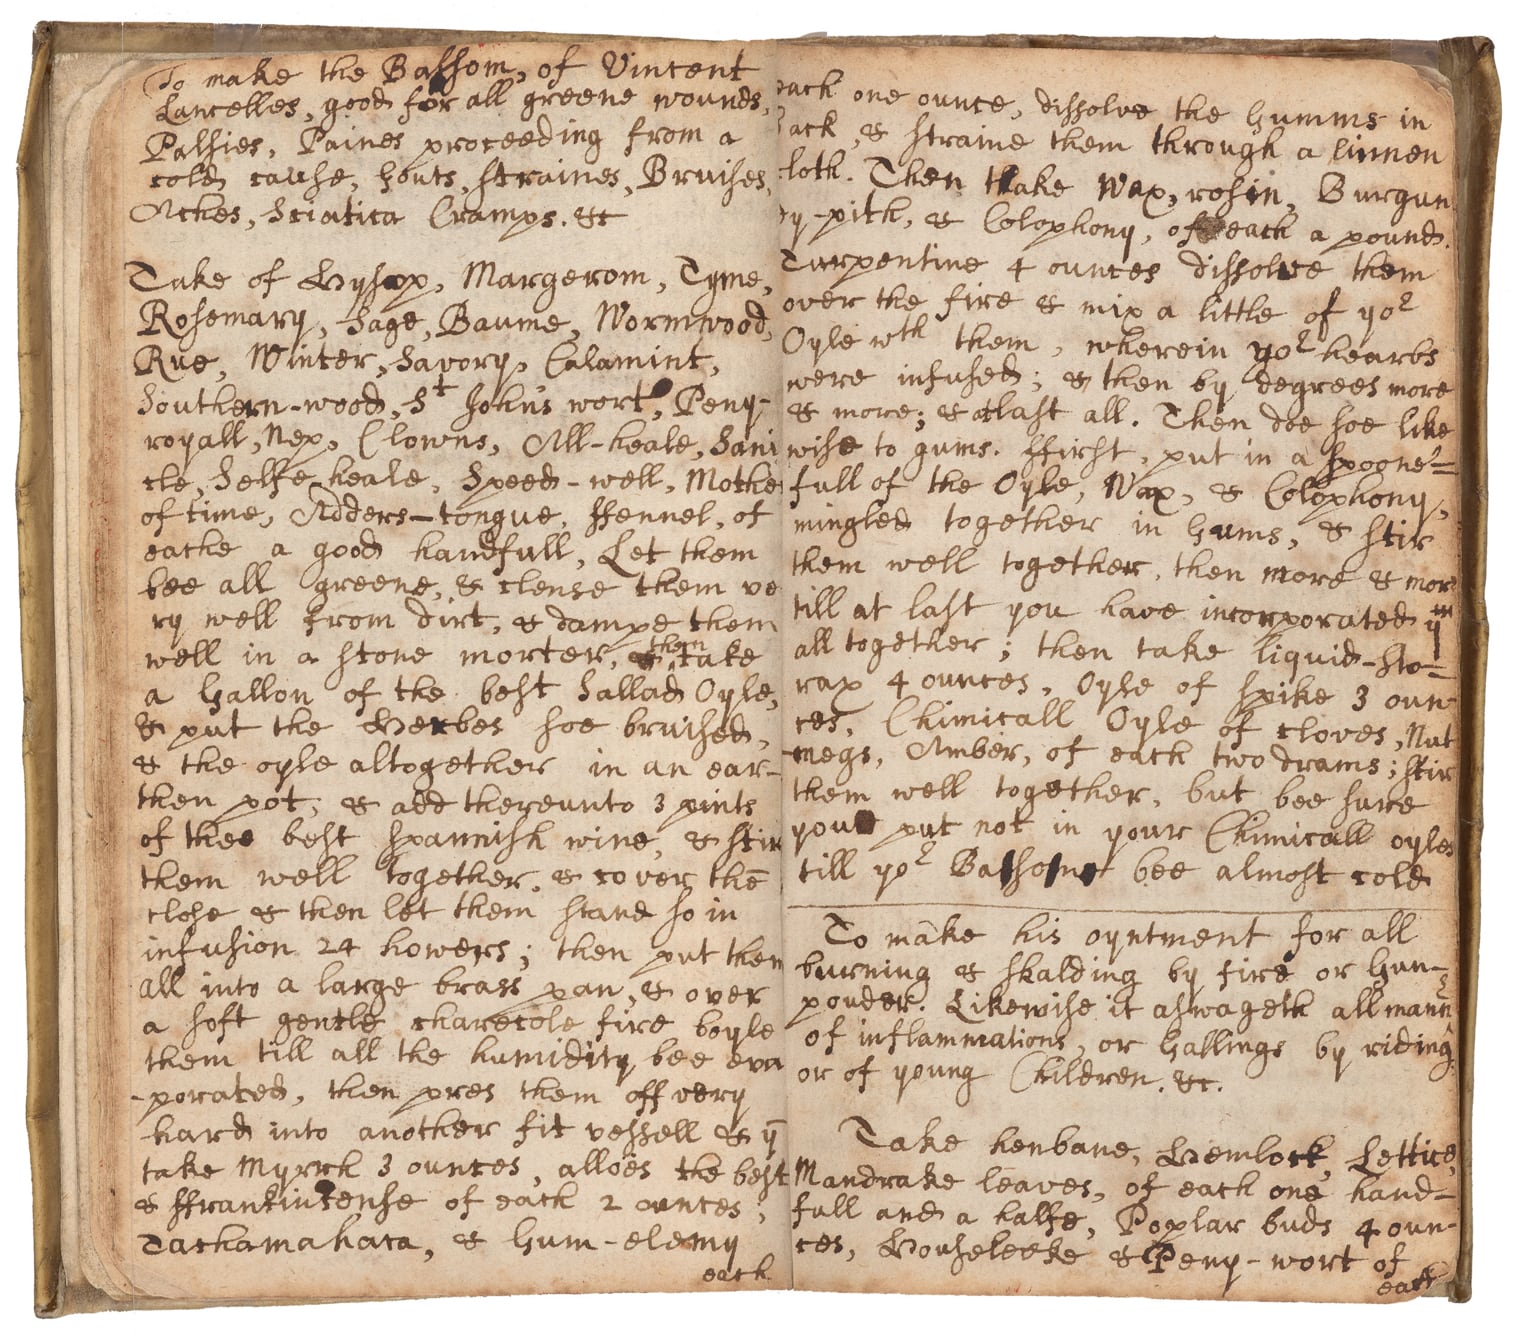 To make the Balsom, of Vincent
Lancelles, good for all greene wounds,
Palsies, Paines proceeding from a
cold cause, Gouts, straines, Bruises,
Aches, Sciatica Cramps. &c
Take of Hysop, Margerom, Tyme,
Rosemary, Sage, Baume, Wormwood,
Rue, Winter, Savory, Calamint,
Southern-wood, St Johns wort, Peny-
royall, Nep, Clowns, All-heale, Sani
cle, Selfe heale, Speed-well, Mothe
of time, Adders-tongue, ffennel, of
eache a good handfull, Let them
bee all greene, & clense them ve
ry well from dirt, & dampe them
well in a stone morter, & then take
a Gallon of the best Sallad Oyle,
& put the Herbes soe bruised,
& the oyle altogether in an ear-
then pot; & add thereunto 3 pints
of thee best spannish wine, & stir
them well together, & cover thē
close & then let them stand so in
infusion 24 howers; then put them
all into a large brass pan, & over
a soft gentle charecole fire boyle
them till all the humidity bee eva
-porated, then pres them off very
hard into another fit vessell & yn
take Myrrh 3 ounces, alloes the best
& ffrankinsense of each 2 ounces;
Tachamahaca, & Gum-elemy
each
each one ounce, dissolve the Gumms in
Sack, & straine them through a linnen
cloth. Then take Wax, rosin, Burgun
dy-pith, & Colophony, of each a pound.
Turpentine 4 ounces dissolve them
over the fire & mix a little of yor
Oyle wth them, wherein yor hearbs
were infused; & then by degrees more
& more; & atlast all. Then doe soe like
wise to gums. ffirst, put in a spoone=
full of the Oyle, Wax, & Colophony,
mingled together in Gums, & stir
them well together, then more & more
till at last you have incorporated ym
all together; then take liquid-sto=
rax 4 ounces, Oyle of spike 3 oun
ces, Chimicall Oyle of cloves, Nut
-megs, Amber, of each two drams; stir
them well together, but bee sure
you put not in your Chimicall oyles
till yor Balsome bee almost cold
To make his oyntment for all
burning & skalding by fire or Gun-
pouder. Likewise it aswageth all mannr
of inflammations, or Gallings by riding
or of young Children. &c.
Take henbane, Hemlock, Lettice,
Mandrake leaves, of each one hand=
full and a halfe, Poplar buds 4 oun-
ces, Houseleeke & Peny-wort of
each